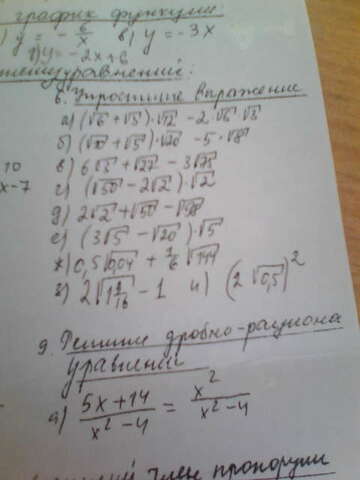 график функции:
) y = - 6/x в) y = -3x
г) y = -2x+6
уравнений:
6. Упростите выражение
а) (√6 + √3)·√12 - 2√6·√3
б) (√10 + √5)·√20 - 5·√8
10
в) 6√3 + √27 - 3√75
x-7
г) (√50 - 2√2)·√2
д) 2√2 + √50 - √98
е) (3√5 - √20)·√5
ж) 0,5√0,04 + 1/6 √144
з) 2√(1 9/16) - 1 и) (2√0,5)²
9. Решите дробно-рациона
уравнений
а) (5x+14)/(x²-4) = x²/(x²-4)
член